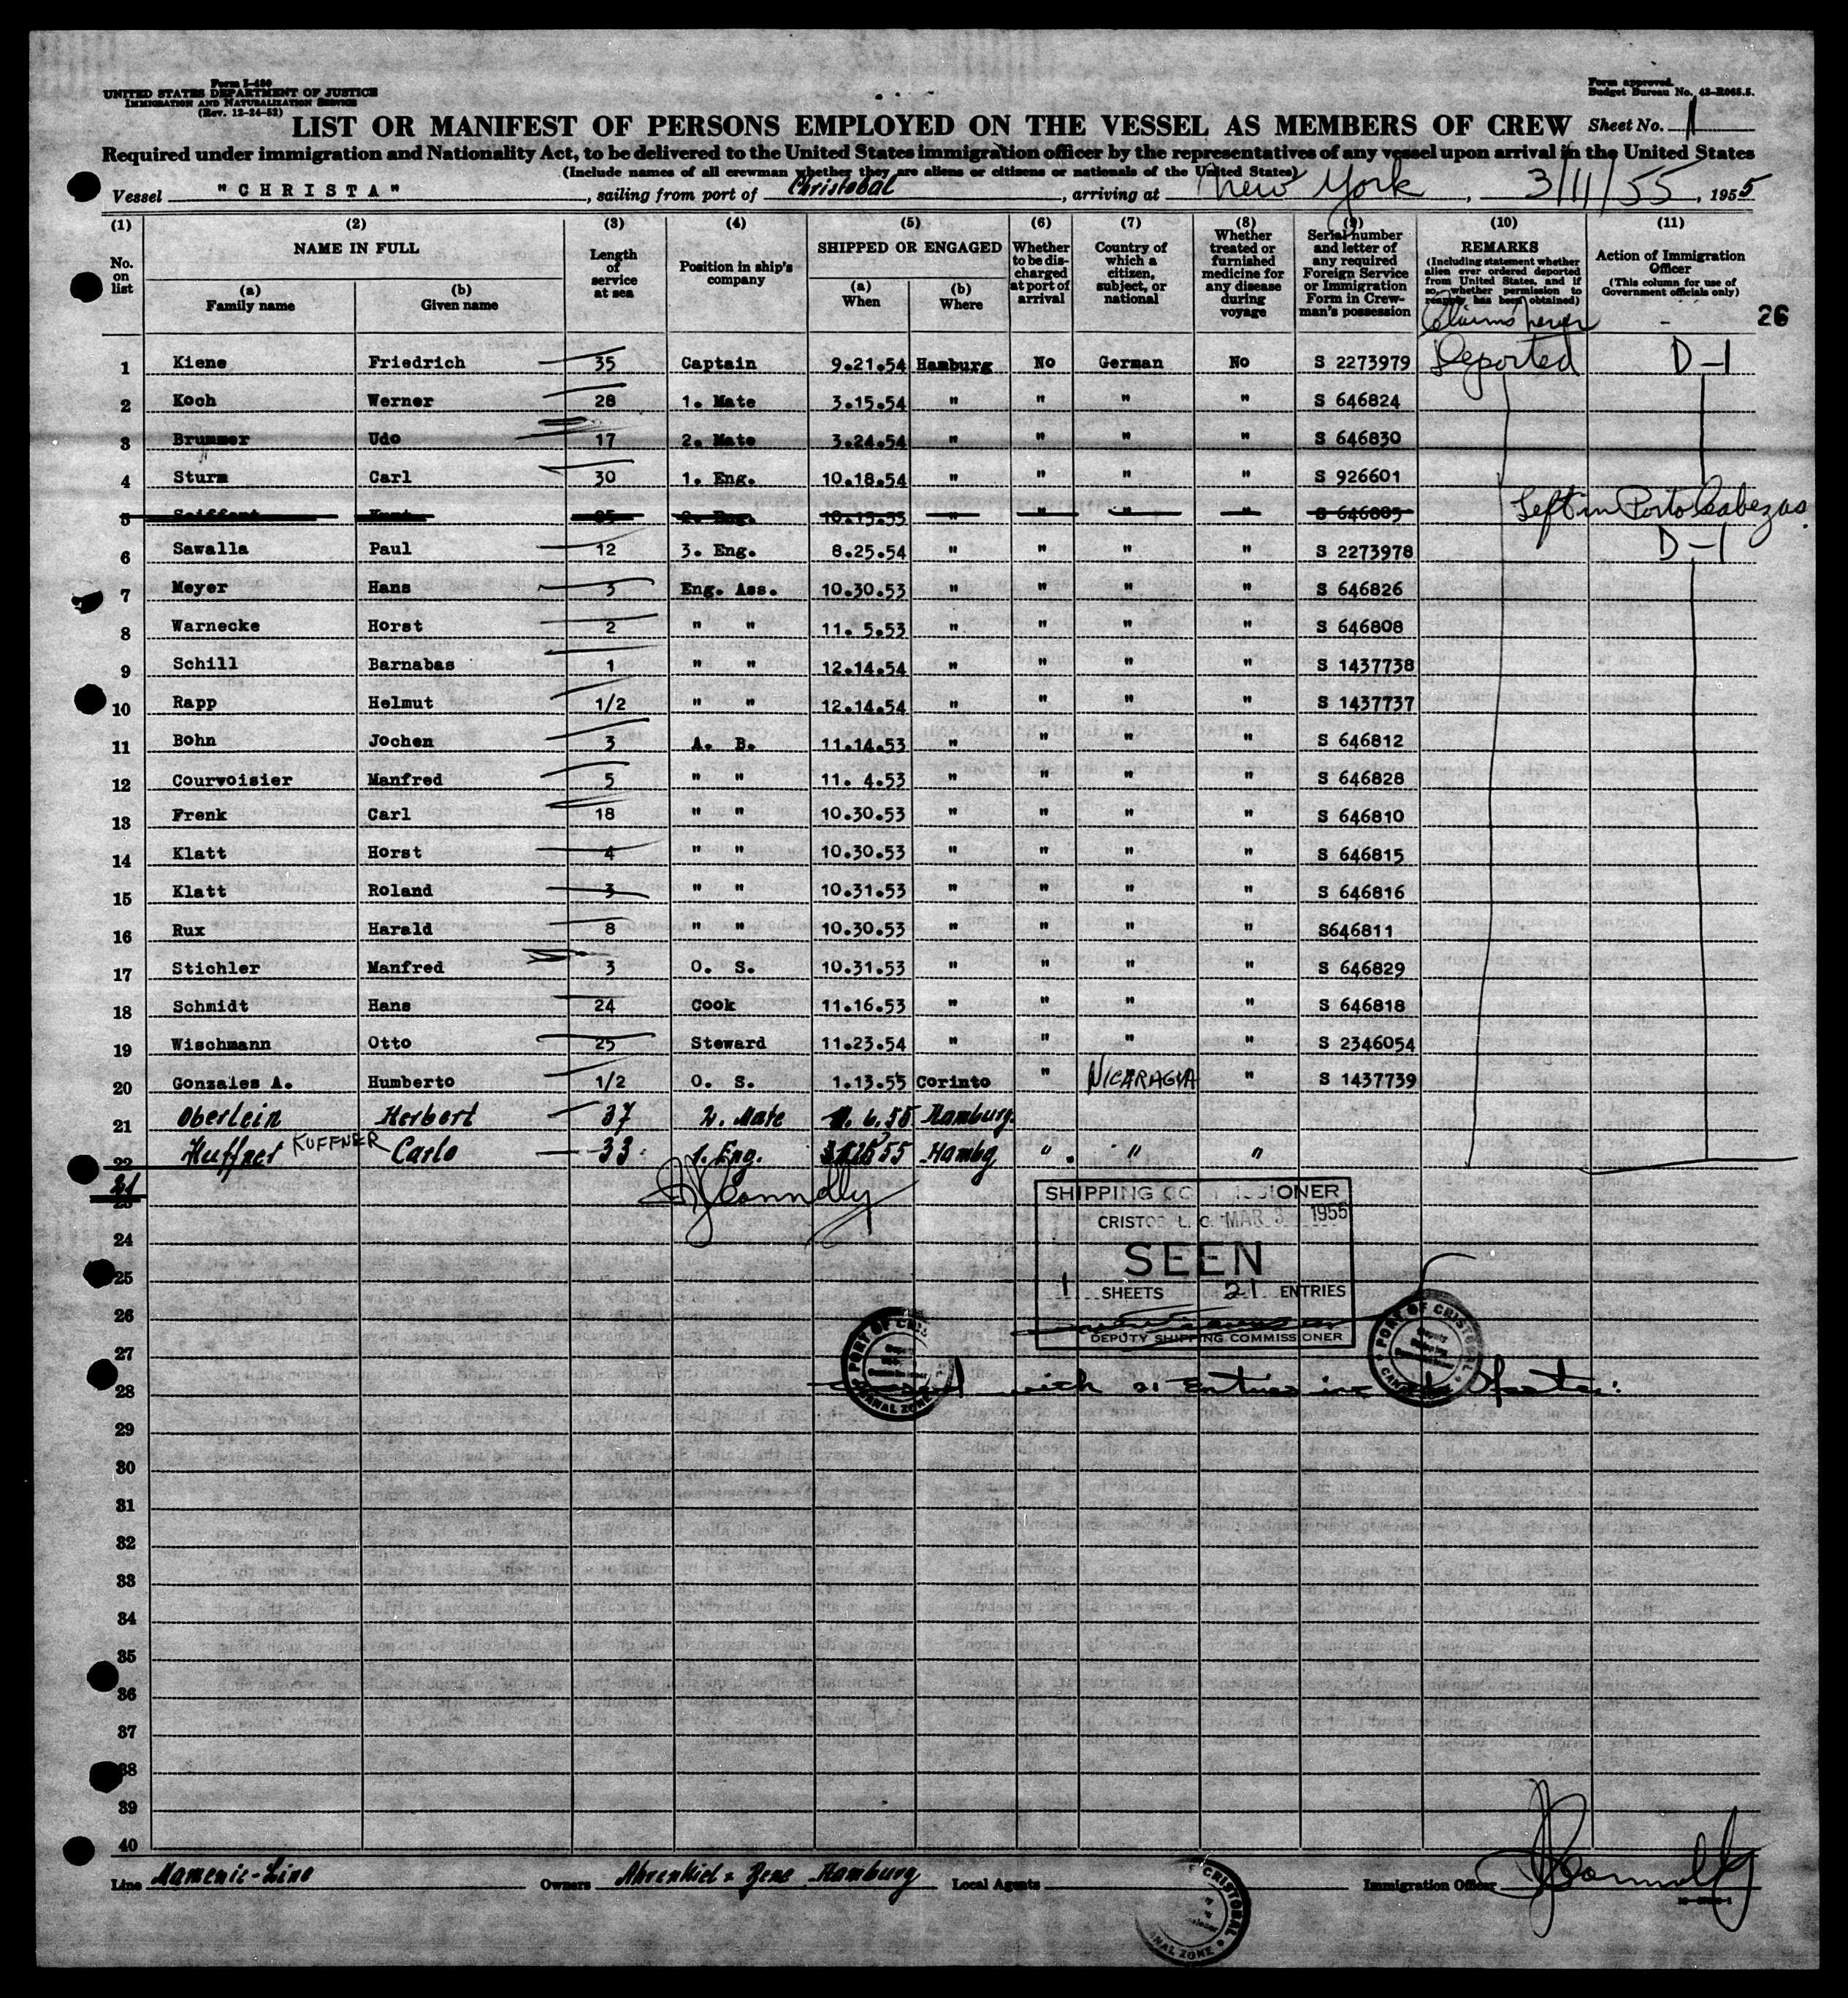 Form I-480
UNITED STATES DEPARTMENT OF JUSTICE
IMMIGRATION AND NATURALIZATION SERVICE
(Rev. 12-24-52)
Form approved.
Budget Bureau No. 43-R065.5.
LIST OR MANIFEST OF PERSONS EMPLOYED ON THE VESSEL AS MEMBERS OF CREW Sheet No. 1
Required under immigration and Nationality Act, to be delivered to the United States immigration officer by the representatives of any vessel upon arrival in the United States
(Include names of all crewman whether they are aliens or citizens or nationals of the United States)
Vessel "CHRISTA", sailing from port of Christobal, arriving at New York, 3/11/55, 1955
(1) (2) (3) (4) (5) (6) (7) (8) (9) (10) (11)
No. on list
NAME IN FULL
(a) Family name
(b) Given name
Length of service at sea
Position in ship's company
SHIPPED OR ENGAGED
(a) When
(b) Where
Whether to be discharged at port of arrival
Country of which a citizen, subject, or national
Whether treated or furnished medicine for any disease during voyage
Serial number and letter of any required Foreign Service or Immigration Form in Crewman's possession
REMARKS
(Including statement whether alien ever ordered deported from United States, and if so, whether permission to reapply has been obtained)
Action of Immigration Officer
(This column for use of Government officials only)
Claims never - 26
1 Kiene Friedrich 35 Captain 9.21.54 Hamburg No German No S 2273979 Deported D-1
2 Koch Werner 28 1. Mate 3.15.54 " " " " S 646824
3 Brummer Udo 17 2. Mate 3.24.54 " " " " S 646830
4 Sturm Carl 30 1. Eng. 10.18.54 " " " " S 926601
5 Seiffert Kurt 2. Eng. " " " " Left in Porto Cabezas
6 Sawalla Paul 12 3. Eng. 8.25.54 " " " " S 2273978 D-1
7 Meyer Hans 3 Eng. Ass. 10.30.53 " " " " S 646826
8 Warnecke Horst 2 " " 11. 5.53 " " " " S 646808
9 Schill Barnabas 1 " " 12.14.54 " " " " S 1437738
10 Rapp Helmut 1/2 " " 12.14.54 " " " " S 1437737
11 Bohn Jochen 3 A. B. 11.14.53 " " " " S 646812
12 Courvoisier Manfred 5 " " 11. 4.53 " " " " S 646828
13 Frenk Carl 18 " " 10.30.53 " " " " S 646810
14 Klatt Horst 4 " " 10.30.53 " " " " S 646815
15 Klatt Roland 3 " " 10.31.53 " " " " S 646816
16 Rux Harald 8 " " 10.30.53 " " " " S646811
17 Stichler Manfred 3 O. S. 10.31.53 " " " " S 646829
18 Schmidt Hans 24 Cook 11.16.53 " " " " S 646818
19 Wischmann Otto 25 Steward 11.23.54 " " " " S 2346054
20 Gonzales A. Humberto 1/2 O. S. 1.13.55 Corinto " NICARAGUA " S 1437739
21 Oberlein Herbert 37 2. Mate 6.55 Hamburg
22 Kuffner KUFFNER Carlo 33 1. Eng. 55 Hambg " " "
21
23
24
25
26
27
28
29
30
31
32
33
34
35
36
37
38
39
40
Connolly
SHIPPING COMMISSIONER
CRISTOBAL, C. MAR 3 1955
SEEN
1 SHEETS 21 ENTRIES
DEPUTY SHIPPING COMMISSIONER
PORT OF CRISTOBAL
CANAL ZONE
PORT OF CRISTOBAL
CANAL ZONE
with 21 Entries
Line Mamenic-Line Owners Ahrenkiel & Bene Hamburg Local Agents Immigration Officer Connolly
CRISTOBAL
CANAL ZONE